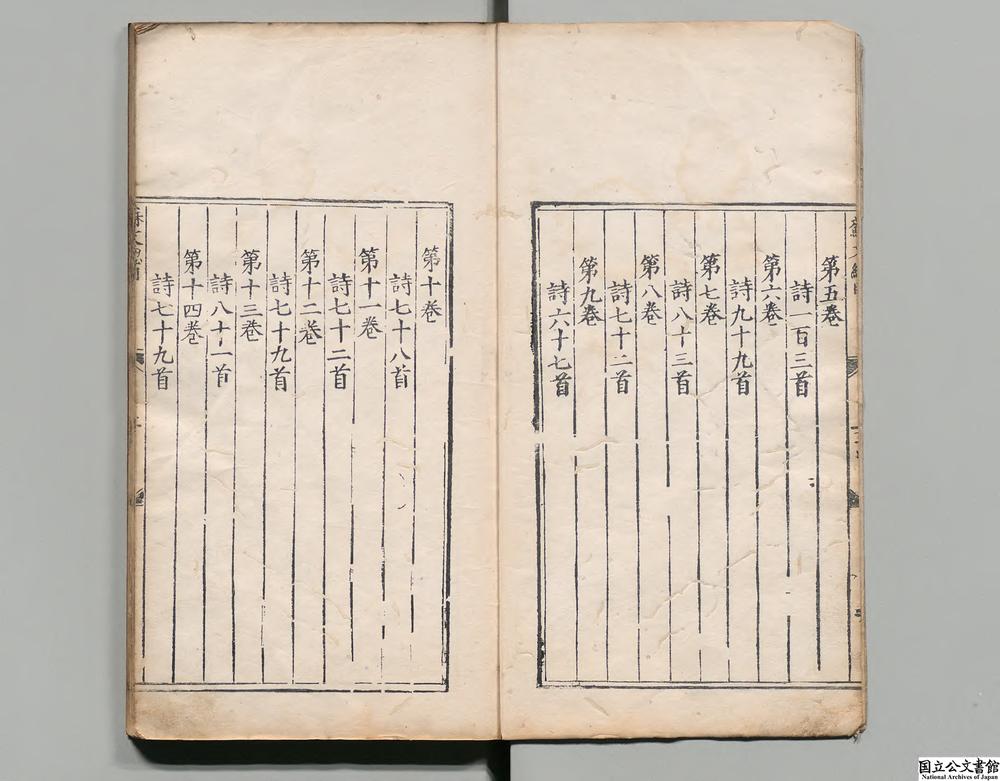 第五卷
詩一百三首
第六卷
詩九十九首
第七卷
詩八十三首
第八卷
詩七十二首
第九卷
詩六十七首
第十卷
詩七十八首
第十一卷
詩七十二首
第十二卷
詩七十九首
第十三卷
詩八十一首
第十四卷
詩七十九首
国立公文書館
National Archives of Japan